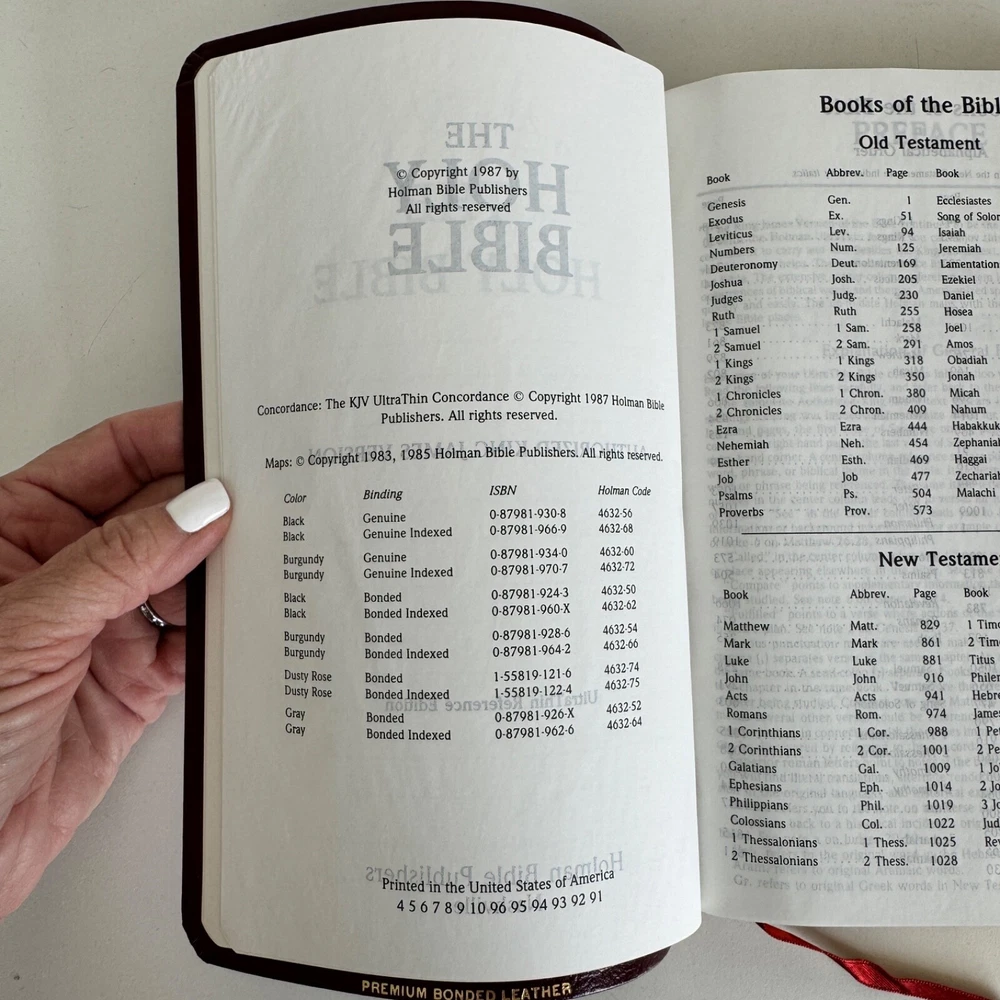 THE
HOLY
BIBLE
HOLY BIBLE
© Copyright 1987 by
Holman Bible Publishers
All rights reserved
Concordance: The KJV UltraThin Concordance © Copyright 1987 Holman Bible
Publishers. All rights reserved.
AUTHORIZED KING JAMES VERSION
Maps: © Copyright 1983, 1985 Holman Bible Publishers. All rights reserved.
Color Binding ISBN Holman Code
Black Genuine 0-87981-930-8 4632-56
Black Genuine Indexed 0-87981-966-9 4632-68
Burgundy Genuine 0-87981-934-0 4632-60
Burgundy Genuine Indexed 0-87981-970-7 4632-72
Black Bonded 0-87981-924-3 4632-50
Black Bonded Indexed 0-87981-960-X 4632-62
Burgundy Bonded 0-87981-928-6 4632-54
Burgundy Bonded Indexed 0-87981-964-2 4632-66
Dusty Rose Bonded 1-55819-121-6 4632-74
Dusty Rose Bonded Indexed 1-55819-122-4 4632-75
UltraThin Reference Edition
Gray Bonded 0-87981-926-X 4632-52
Gray Bonded Indexed 0-87981-962-6 4632-64
Holman Bible Publishers
Printed in the United States of America
4 5 6 7 8 9 10 96 95 94 93 92 91
PREMIUM BONDED LEATHER
Books of the Bibl
Old Testament
Book Abbrev. Page Book
Genesis Gen. 1 Ecclesiastes
Exodus Ex. 51 Song of Solor
Leviticus Lev. 94 Isaiah
Numbers Num. 125 Jeremiah
Deuteronomy Deut. 169 Lamentation
Joshua Josh. 205 Ezekiel
Judges Judg. 230 Daniel
Ruth Ruth 255 Hosea
1 Samuel 1 Sam. 258 Joel
2 Samuel 2 Sam. 291 Amos
1 Kings 1 Kings 318 Obadiah
2 Kings 2 Kings 350 Jonah
1 Chronicles 1 Chron. 380 Micah
2 Chronicles 2 Chron. 409 Nahum
Ezra Ezra 444 Habakkuk
Nehemiah Neh. 454 Zephaniah
Esther Esth. 469 Haggai
Job Job 477 Zechariah
Psalms Ps. 504 Malachi
Proverbs Prov. 573
New Testame
Book Abbrev. Page Book
Matthew Matt. 829 1 Timo
Mark Mark 861 2 Timo
Luke Luke 881 Titus
John John 916 Philer
Acts Acts 941 Hebre
Romans Rom. 974 James
1 Corinthians 1 Cor. 988 1 Pet
2 Corinthians 2 Cor. 1001 2 Pe
Galatians Gal. 1009 1 Jo
Ephesians Eph. 1014 2 Jo
Philippians Phil. 1019 3 Jo
Colossians Col. 1022 Jud
1 Thessalonians 1 Thess. 1025 Rev
2 Thessalonians 2 Thess. 1028